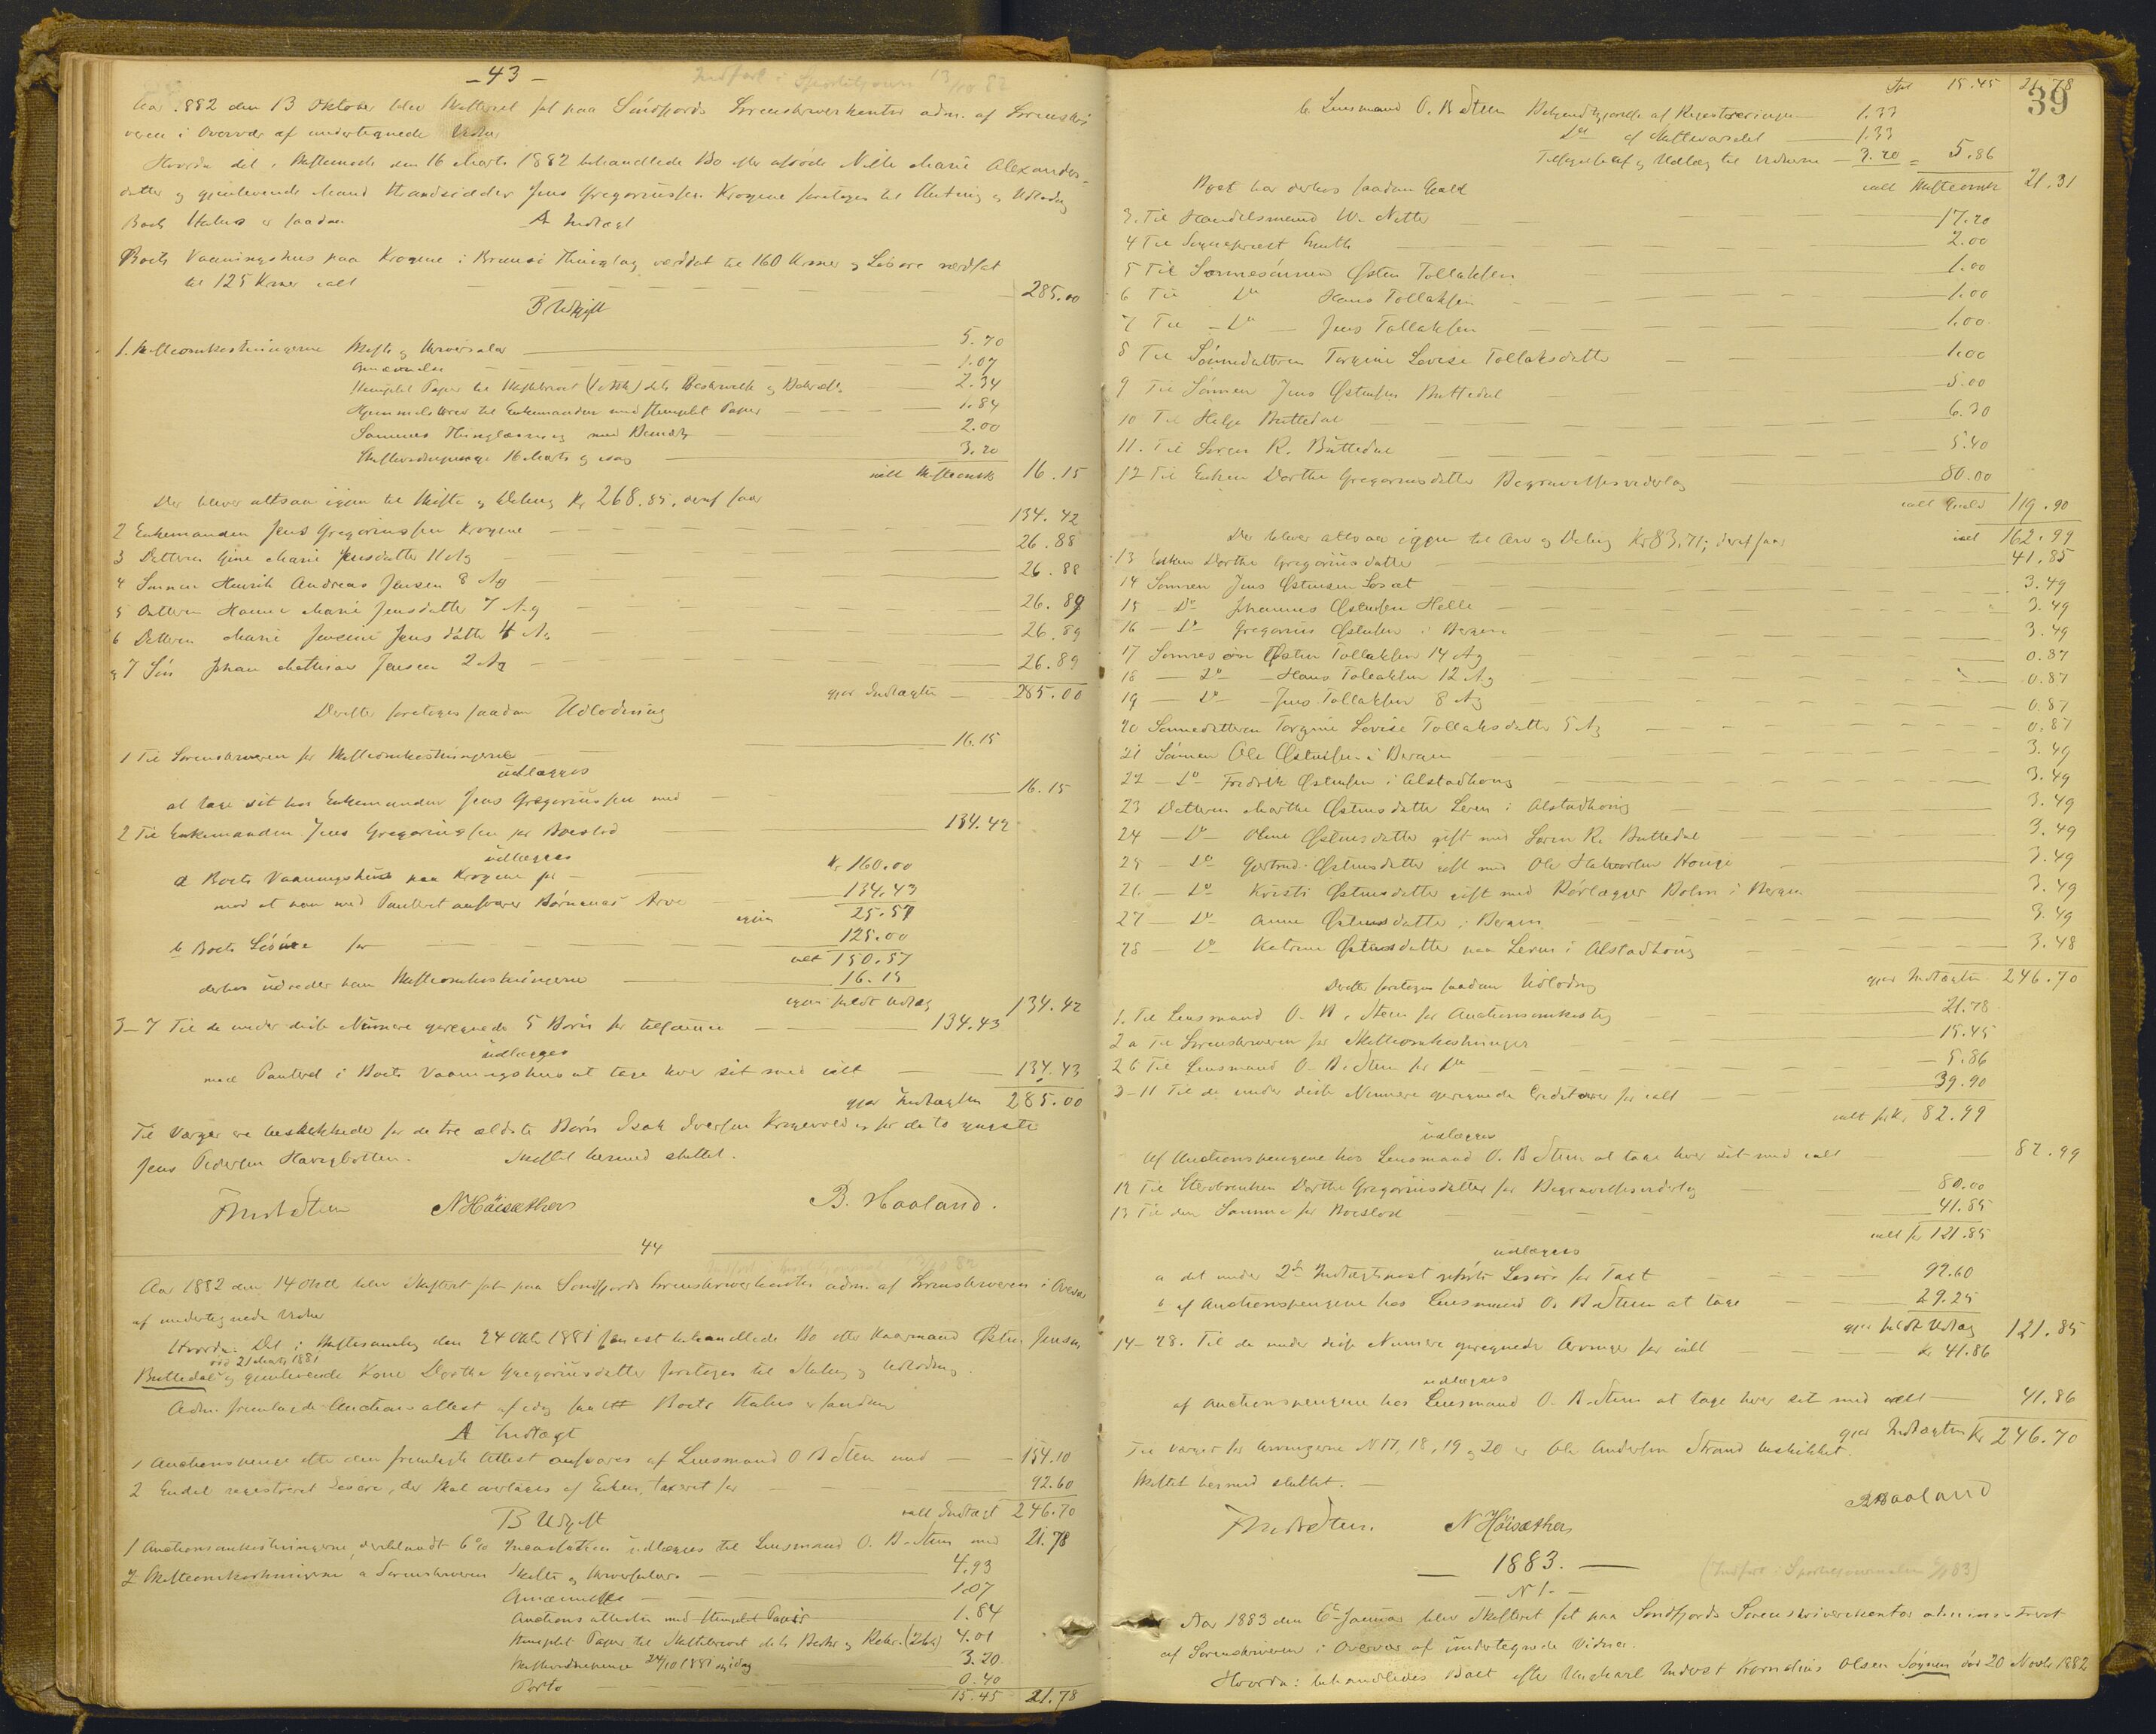 - 43 -
Indført i Sporteljournal 13/10 82
Aar 1882 den 13 Oktober blev Skifteret sat paa Söndfjords Sorenskriverkontor adm. af Sorenskri
veren i Overvær af undertegnede Vidner
Hvorda det i Skiftemøde den 16 Marts 1882 behandlede Bo efter afdøde Nille Marie Alexanders-
datter og gjenlevende Mand Strandsidder Jens Gregoriussen Krogene foretages til Slutning og Udlodng
Boets Status er saadan
A Indtægt
Boets Vaaningshus paa Krogene i Thinglag værdsat til 160 Kroner og Løsøre værdsat
til 125 Kroner ialt 285.00
B Udgift
1. Skifteomkostningerne Skifte og Skriversalær 5.70
1.07
Stemplet Papir til Skiftebrevet dets Beskrivelse og 2.34
Hjemmelsbrev til Enkemanden med stemplet Papir 1.84
Sammes Thinglæsning med 2.00
Skiftevidnepenge 16 Marts og idag 3.20
ialt Skifteomk 16.15
Der bliver altsaa igjen til Skifte og Deling Kr 268.85, deraf faar
2 Enkemanden Jens Gregoriussen Krogene 134.42
3 Datteren Gine Marie Jensdatter 11 Ag 26.88
4 Sönnen Henrik Andreas Jensen 8 Ag 26.88
5 Datteren Hanna Marie Jensdatter 7 Ag 26.89
6 Datteren Marie Jensine Jensdatter 4 Ag 26.89
7 Sön Johan Mathias Jensen 2 Ag 26.89
gjør Indtægten 285.00
Derefter foretages saadan Udlodning
1 Til Sorenskriveren for Skifteomkostningerne 16.15
udlægges
at tage sit hos Enkemanden Jens Gregoriussen med 16.15
2 Til Enkemanden Jens Gregoriussen for Boeslod 134.42
udlægges
a Boets Vaaningshus paa Krogene for Kr 160.00
mod at han med Panteret ansvarer Børnenes Arv 134.43
igjen 25.57
b Boets Lösöre for 125.00
ialt 150.57
derhos udreder han Skifteomkostningerne 16.15
igjen fuldt Udlæg 134.42
3-7 Til de under disse Numere opregnede 5 Börn for tilsammen 134.43
udlægges
med Panteret i Boets Vaaningshus at tage hver sit med ialt 134.43
gjør Indtægten 285.00
Til Værger ere beskikkede for de tre ældste Börn Isak Iversen og for de to yngste
Jens Pedersen Havigbotten. Skiftet hermed sluttet.
N Höisæther B. Haaland.
44
Aar 1882 den 14 Oktb blev Skifteret sat paa Söndfjords Sorenskriverkontor adm. af Sorenskriveren i Overvær
af undertegnede Vidner
Hvorda: Det i Skiftesamling den 24 Oktb 1881 behandlede Bo efter Huusmand Østen Jensen
død 21 Marts 1881
Buttedal og gjenlevende Kone Dorthe Gregoriusdatter foretages til Slutng og Udlodning.
Adm. fremlagde Auctionsattest af idag Boets Status er saadan
A Indtægt
1 Auctionspenge efter den fremlagte Attest ansvares af Lensmand O B Steen med 154.10
2 Endel registreret Løsøre, der skal overtages af Enken, taxeret for 92.60
ialt Indtægt 246.70
B Udgift
1 Auctionsomkostningerne, deriblandt 6% Incassation udlægges til Lensmand O. B. Steen med 21.78
2 Skifteomkostningerne a Sorenskriveren Skifte og Skriversalær 4.93
1.07
Auctionsattesten med stemplet Papir 1.84
Stemplet Papir til Skiftebrevet dets Beskr og Bekr. 4.01
Skiftevidnepenge 24/10 1881 og idag 3.20
Porto 0.40
15.45 21.78
39
15.45 21.78
b Lensmand O. B Steen Bekjendtgjørelse af Registreringen 1.33
Do af Skiftevarslet 1.33
Tilsigelse af og Udlæg til Vidnerne 3.20 = 5.86
ialt Skifteomk 21.31
Boet har derhos saadan Gield
3. Til Handelsmand W. Netter 17.20
4 Til Sogneprest 2.00
5 Til Sönnesönnen Østen Tollaksen 1.00
6 Til Do Hans Tollaksen 1.00
7 Til Do Jens Tollaksen 1.00
8 Til Sönnedatteren Torgine Lovise Tollaksdatter 1.00
9 Til Sönnen Jens Østensen Buttedal 5.00
10 Til Helge Buttedal 6.30
11. Til Søren R. Buttedal 5.40
12 Til Enken Dorthe Gregoriusdatter Begravelsesvederlag 80.00
ialt Gield 119.90
ialt 162.99
Der bliver altsaa igjen til Arv og Deling Kr 83.71; deraf faar
13 Enken Dorthe Gregoriusdatter 41.85
14 Sönnen Jens Østensen 3.49
15 Do Johannes Østensen Helle 3.49
16 Do Gregorius Østensen i Bergen 3.49
17 Sönnesön Østen Tollaksen 14 Ag 0.87
18 Do Hans Tollaksen 12 Ag 0.87
19 Do Jens Tollaksen 8 Ag 0.87
20 Sönnedatteren Torgine Lovise Tollaksdatter 5 Ag 0.87
21 Sönnen Ole Østensen i Bergen 3.49
22 Do Fredrik Østensen i Alstadhoug 3.49
23 Datteren Marthe Østensdatter Leren i Alstadhoug 3.49
24 Do Oline Østensdatter gift med Søren R. Buttedal 3.49
25 Do Gjertrud Østensdatter gift med Ole Halvorsen Houge 3.49
26 Do Kristi Østensdatter gift med Rørlægger Holm i Bergen 3.49
27 Do Anne Østensdatter i Bergen 3.49
28 Do Katrine Østensdatter paa Leren i Alstadhoug 3.48
gjør Indtægten 246.70
Derefter foretages saadan Udlodng
1. Til Lensmand O. B. Steen for Auctionsomkostg 21.78
2 a Til Sorenskriveren for Skifteomkostninger 15.45
2 b Til Lensmand O. B. Steen for Do 5.86
3-11 Til de under disse Numere opregnede Creditorer for ialt 39.90
ialt for Kr. 82.99
udlægges
af Auctionspengene hos Lensmand O. B Steen at tage hver sit med ialt 82.99
12 Til Dorthe Gregoriusdatter for Begravelsesvederlag 80.00
13 Til den Samme for Boeslod 41.85
ialt for 121.85
udlægges
a det under 2den Indtægtspost opførte Løsøre for Taxt 92.60
b af Auctionspengene hos Lensmand O. B. Steen at tage 29.25
gjør fuldt Udlæg 121.85
14-28. Til de under disse Numere opregnede Arvinger for ialt Kr 41.86
udlægges
af Auctionspengene hos Lensmand O. B. Steen at tage hver sit med ialt 41.86
gjør Indtægten Kr 246.70
Til Værger for Arvingerne N 17, 18, 19 og 20 er Ole Andersen Strand beskikket.
Skiftet hermed sluttet.
N Höisæther B Haaland
1883.
(Indført i Sporteljournalen 83)
N 1.
Aar 1883 den 6te Januar blev Skifteret sat paa Söndfjords Sorenskriverkontor administreret
af Sorenskriveren i Overvær af undertegnede Vidner.
Hvorda: behandledes Boet efter Ungkarl Inderst Kornelius Olsen Sögnen död 20 Novbr 1882